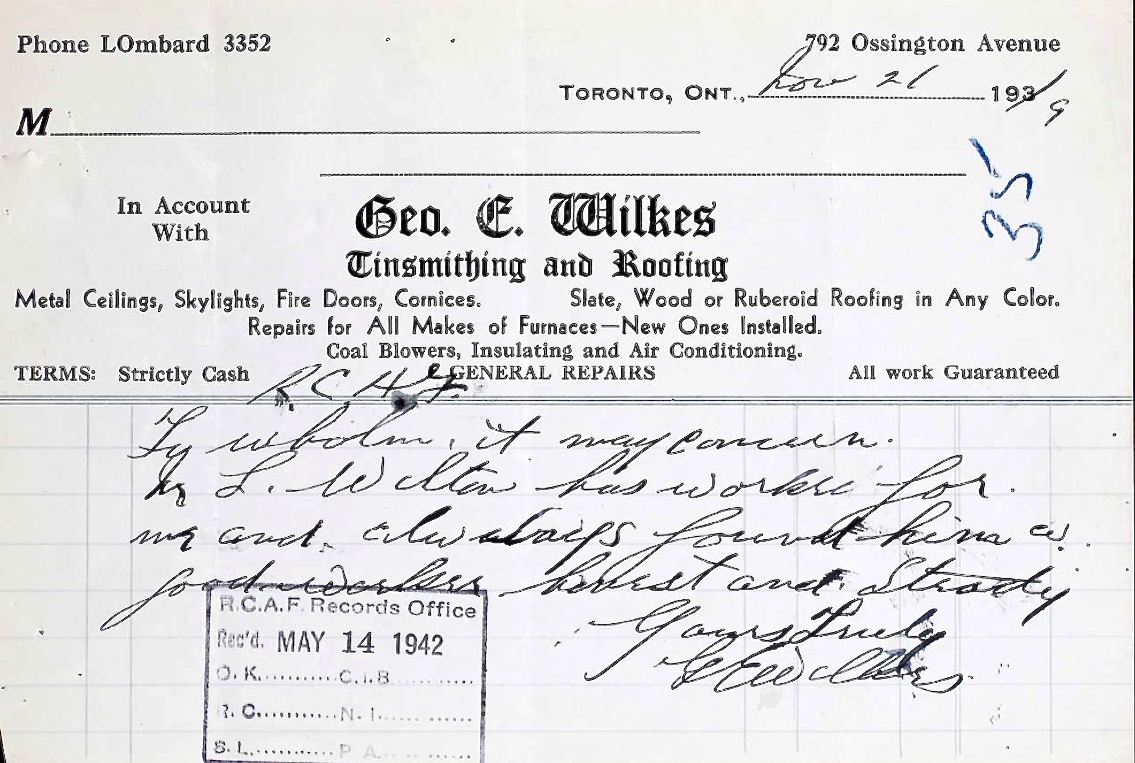 Phone LOmbard 3352
792 Ossington Avenue
TORONTO, ONT., Nov 21 1939
M
35
In Account
With
Geo. E. Wilkes
Tinsmithing and Roofing
Metal Ceilings, Skylights, Fire Doors, Cornices. Slate, Wood or Ruberoid Roofing in Any Color.
Repairs for All Makes of Furnaces—New Ones Installed.
Coal Blowers, Insulating and Air Conditioning.
TERMS: Strictly Cash GENERAL REPAIRS All work Guaranteed
R.C.A.F.
To wholm it may concern.
Mr L. Wilton has worked for
me and always found him a
good worker honest and steady
Yours Truly
G E Wilkes
R.C.A.F. Records Office
Rec'd. MAY 14 1942
O.K..........C.I.B..........
R.C...........N.I...........
S.L............P.A...........